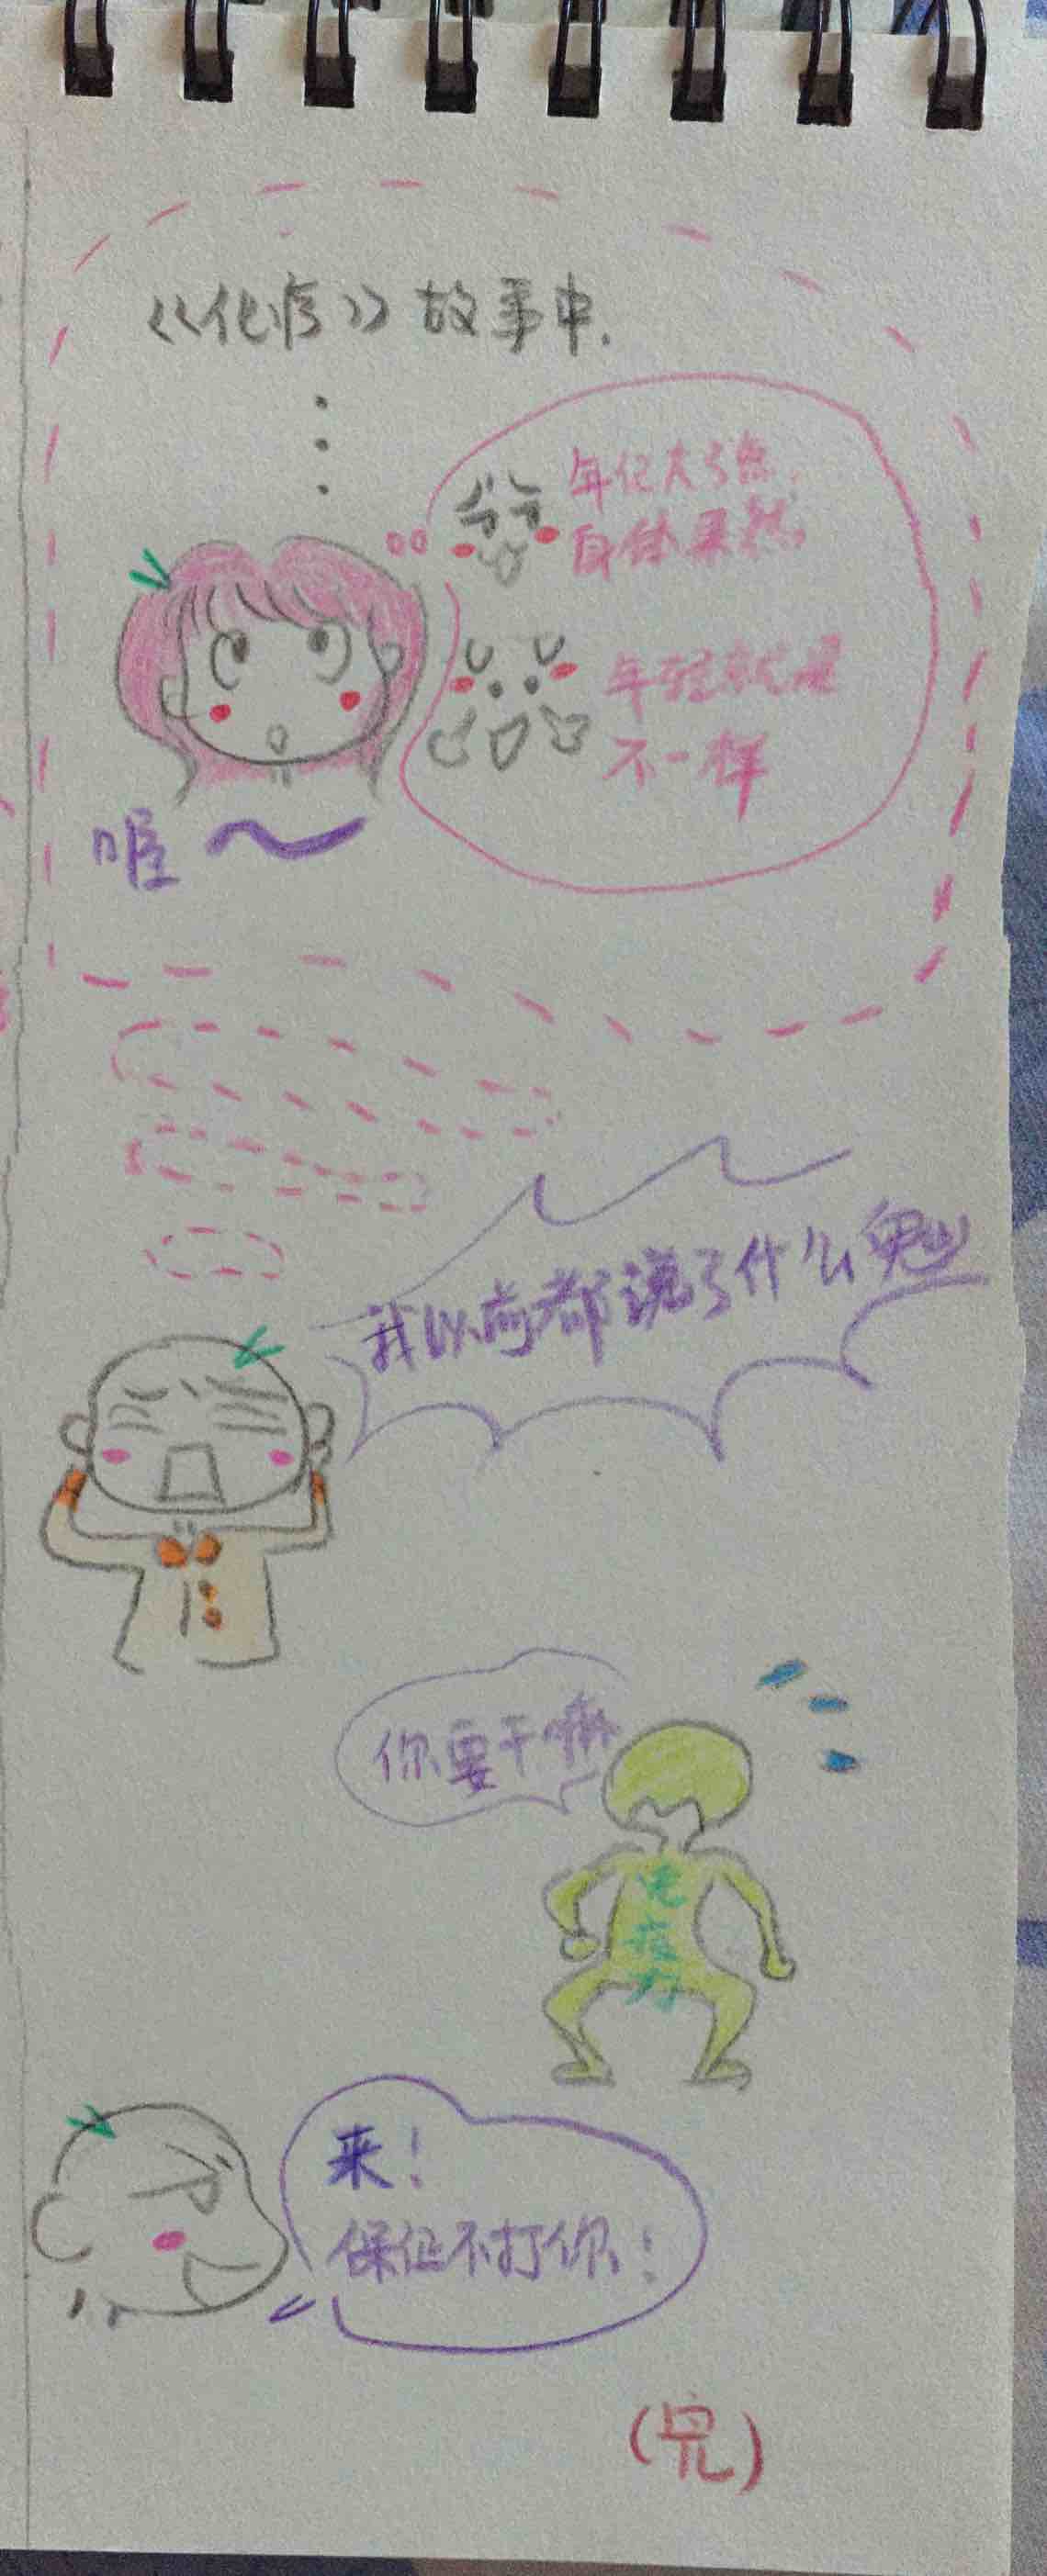 《化疗》故事中.
年亿大了点,
自体果然,
年轻就是
不一样
喔～
我以前都说了什么鬼
你要干嘛
免疫力
来！
保证不打你！
(完)